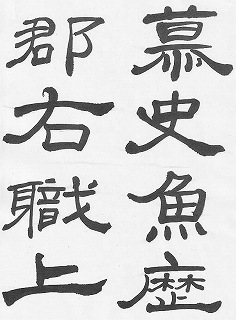 慕史魚歴
郡右職上